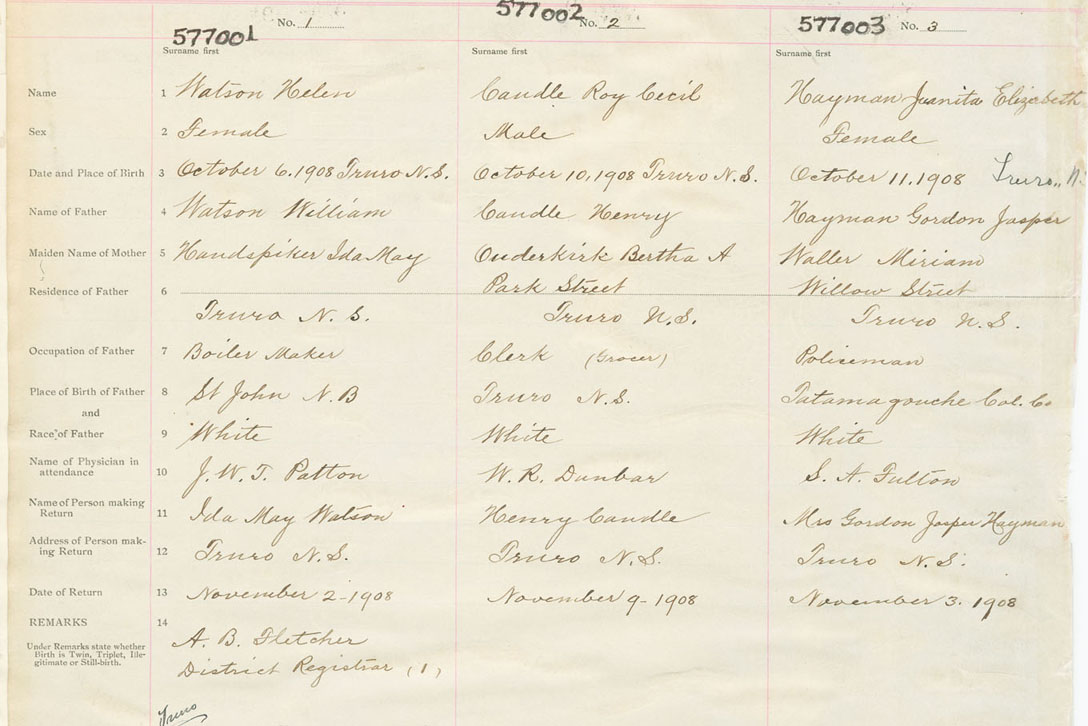 577001 No. 1 577002 No. 2 577003 No. 3
Surname first Surname first Surname first
Name 1 Watson Helen Caudle Roy Cecil Hayman Juanita Elizabeth
Sex 2 Female Male Female
Date and Place of Birth 3 October 6. 1908 Truro N.S. October 10, 1908 Truro N.S. October 11, 1908 Truro, N.
Name of Father 4 Watson William Caudle Henry Hayman Gordon Jasper
Maiden Name of Mother 5 Handspiker Ida May Ouderkirk Bertha A Waller Miriam
Residence of Father 6 Park Street Willow Street
Truro N. S. Truro N.S. Truro N.S.
Occupation of Father 7 Boiler Maker Clerk (Grocer) Policeman
Place of Birth of Father 8 St John N.B Truro N.S. Tatamagouche Col. Co
and
Race of Father 9 White White White
Name of Physician in
attendance 10 J. W. T. Patton W. R. Dunbar S. A. Fulton
Name of Person making
Return 11 Ida May Watson Henry Caudle Mrs Gordon Jasper Hayman
Address of Person mak-
ing Return 12 Truro N.S. Truro N.S. Truro N.S.
Date of Return 13 November 2-1908 November 9-1908 November 3. 1908
REMARKS 14
Under Remarks state whether
Birth is Twin, Triplet, Ille-
gitimate or Still-birth.
A. B. Fletcher
District Registrar (1)
Truro